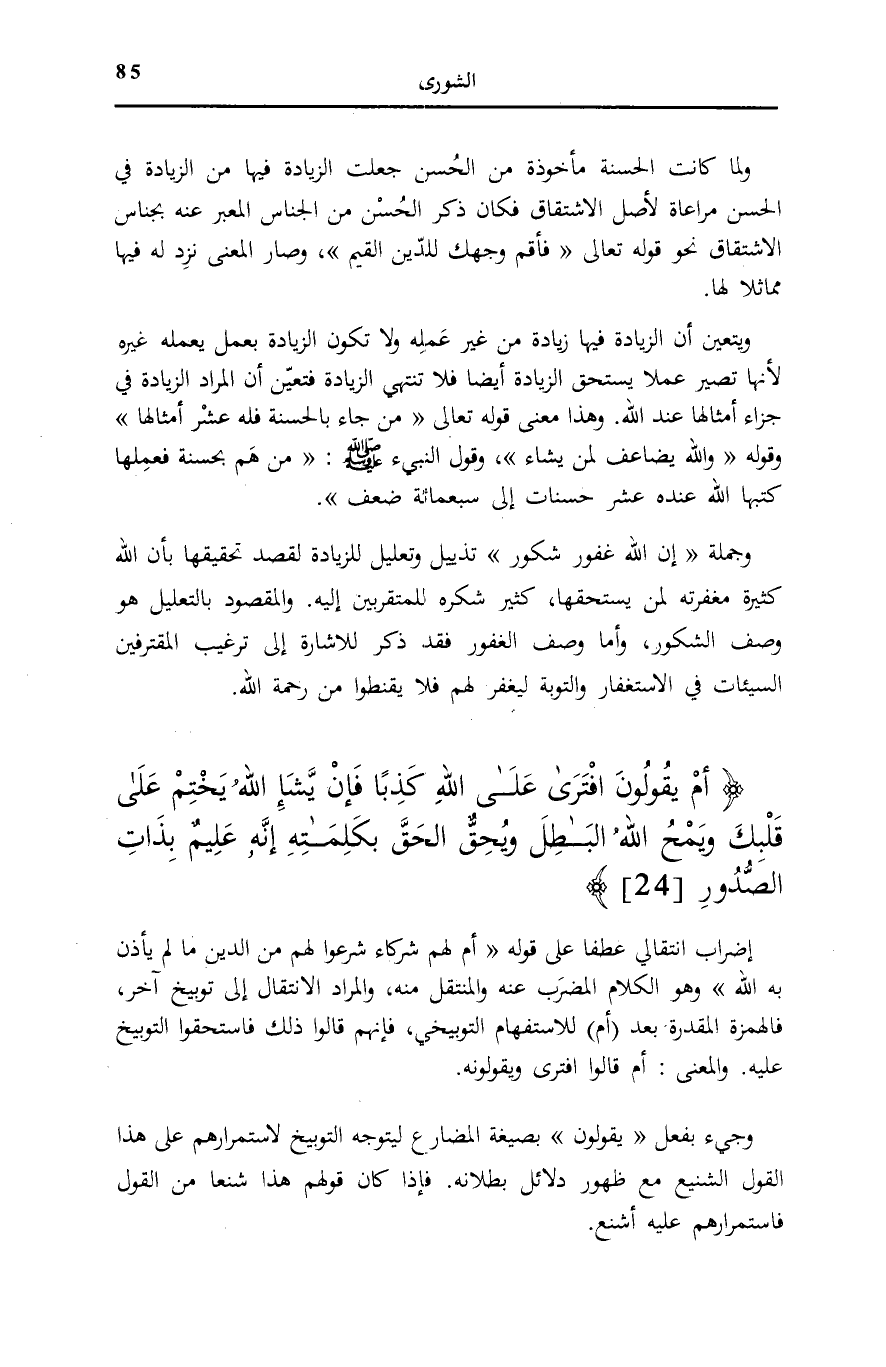 85
الشورى
ولما كانت الحسنة مأخوذة من الحُسن جعلت الزيادة فيها من الزيادة في
الحسن مراعاة لأصل الاشتقاق فكان ذكر الحُسْن من الجناس المعبر عنه بجناس
الاشتقاق نحو قوله تعالى « فأقم وجهك للدّين القيم »، وصار المعنى نزِد له فيها
مماثلا لها.
ويتعين أن الزيادة فيها زيادة من غير عَمله ولا تكون الزيادة بعمل يعمله غيره
لأنها تصير عملا يستحق الزيادة أيضا فلا تنتهي الزيادة فتعيّن أن المراد الزيادة في
جزاء أمثالها عند الله. وهذا معنى قوله تعالى « من جاء بالحسنة فله عشْر أمثالها »
وقوله « والله يضاعف لمن يشاء »، وقول النبيء ﷺ : « من هَم بحسنة فعمِلها
كتبها الله عنده عشر حسنات إلى سبعمائة ضعف ».
وجملة « إن الله غفور شكور » تذييل وتعليل للزيادة لقصد تحقيقها بأن الله
كثيرة مغفرته لمن يستحقها، كثير شكره للمتقربين إليه. والمقصود بالتعليل هو
وصف الشكور، وأما وصف الغفور فقد ذكر للاشارة إلى ترغيب المقترفين
السيئات في الاستغفار والتوبة ليغفر لهم فلا يقنطوا من رحمة الله.
﴿ أَمْ يَقُولُونَ افْتَرَىٰ عَلَـــى اللهِ كَذِبًا فَإِنْ يَّشَإِ اللهُ يَخْتِمْ عَلَىٰ
قَلْبِكَ وَيَمْحُ اللهُ البَـٰـطِلَ ويُحِقُّ الحَقَّ بكَلِمَـٰـتِهِ إنَّه عَلِيمٌ بِذَاتِ
الصُّدُورِ [24] ﴾
إضراب انتقالي عطفا على قوله « أم لهم شركاء شرعوا لهم من الدين ما لم يأذن
به الله » وهو الكلام المضرَب عنه والمنتقل منه، والمراد الانتقال إلى توبيخ آخر،
فالهمزة المقدرة بعد (أم) للاستفهام التوبيخي، فإنهم قالوا ذلك فاستحقوا التوبيخ
عليه. والمعنى : أم قالوا افترى ويقولونه.
وجيء بفعل « يقولون » بصيغة المضارع ليتوجه التوبيخ لاستمرارهم على هذا
القول الشنيع مع ظهور دلائل بطلانه. فإذا كان قولهم هذا شنعا من القول
فاستمرارهم عليه أشنع.